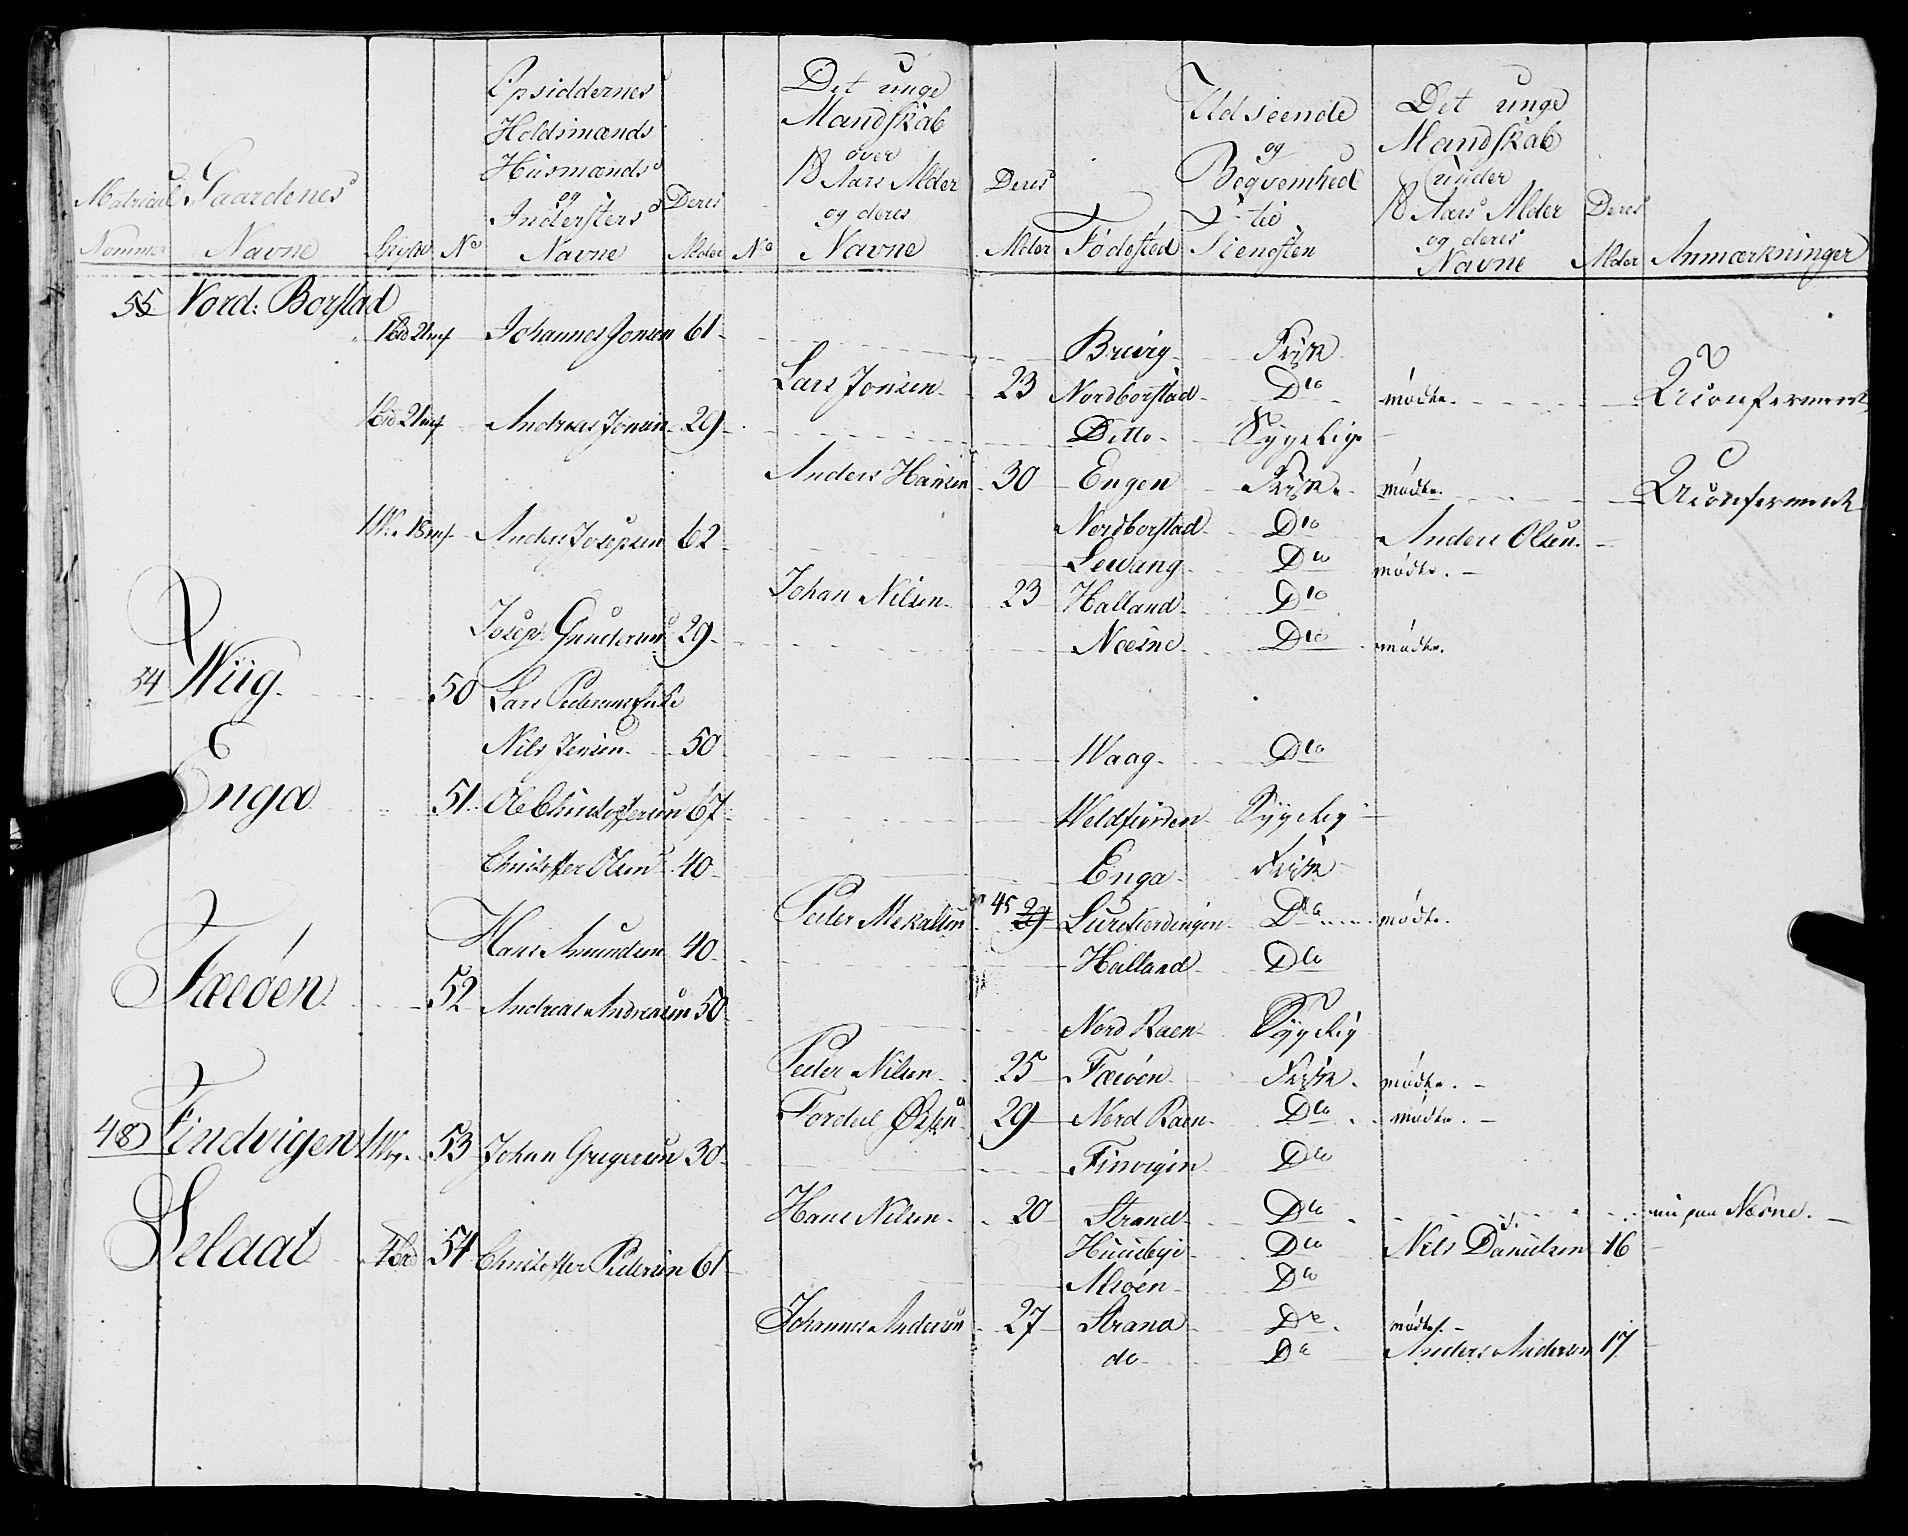 Matricul Nommer | Gaardenes Navne | Skyld | No | Opsiddernes Holdsmænds Huusmænds og Indersters Navne | Deres Alder | No | Det unge Mandskab over 18 Aars Alder og deres Navne | Deres Alder | Fødested | Udseende og Beqvemhed til Tienesten | Det unge Mandskab under 18 Aars Alder og deres Navne | Deres Alder | Anmærkninger
55 Nord: Borstad
Johannes Jonsen 61 Brevig Frisk
Lars Jonsen 23 Nordborstad Dto mødte. Uconfermert
Andreas Jonsen 29 Ditto Sygelig
Anders Hansen 30 Engen Frisk mødte. Uconfermert
Anders Josepsen 62 Nordborstad Dto Anders Olsen
Levang Dto mødte.
Johan Nilsen 23 Halland Dto
Joseph Gundersen 29 Næsne Dto mødte.
54 Wiig 50 Lars Pedersens Enke
Nils Jensen 50 Waag Dto
Enga 51 Ole Christoffersen 67 Weldfiorden Sygelig
Christoffer Olsen 40 Enga Frisk
Peder Mekalsen 45 29 Lurefiordingen Dto mødte.
Hans Amundsen 40 Halland Dto
Færøen 52 Andreas Andreasen 50 Nord Raen Sygelig
Peder Nilsen 25 Færøen Frisk mødte.
Tordal 29 Nord Raen Dto mødte.
48 Findvigen 1 Wog. 53 Johan Gregersen 30 Finvigen Dto
Hans Nilsen 20 Strand Dto Næsne.
Selaat 54 Christoffer Pedersen 61 Dto Nils Danielsen 16
Alsøen Dto
Johannes Andersen 27 Strand Do mødt.
do Do Anders Andersen 17